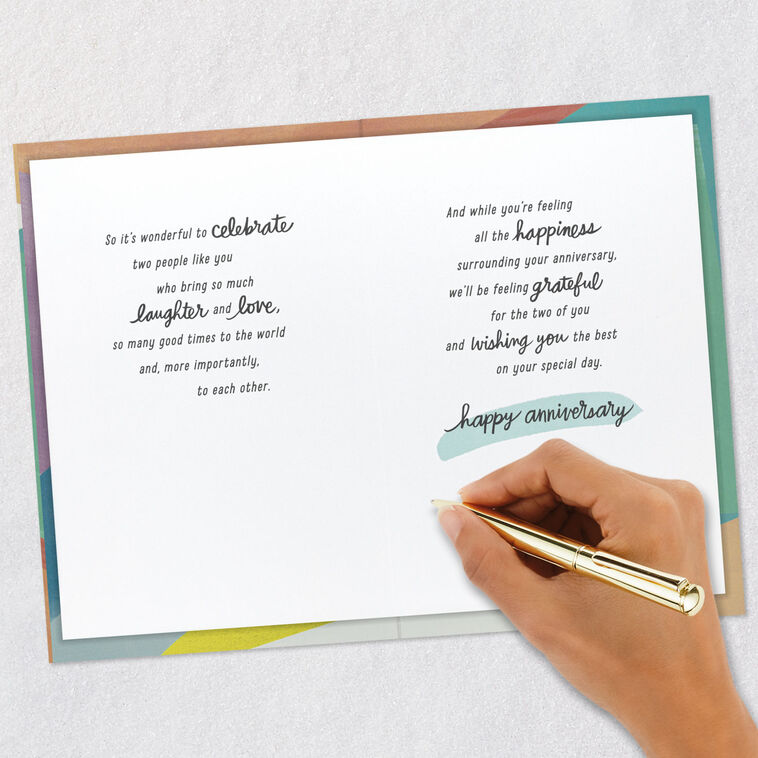 So it's wonderful to celebrate
two people like you
who bring so much
laughter and love,
so many good times to the world
and, more importantly,
to each other.
And while you're feeling
all the happiness
surrounding your anniversary,
we'll be feeling grateful
for the two of you
and wishing you the best
on your special day.
happy anniversary